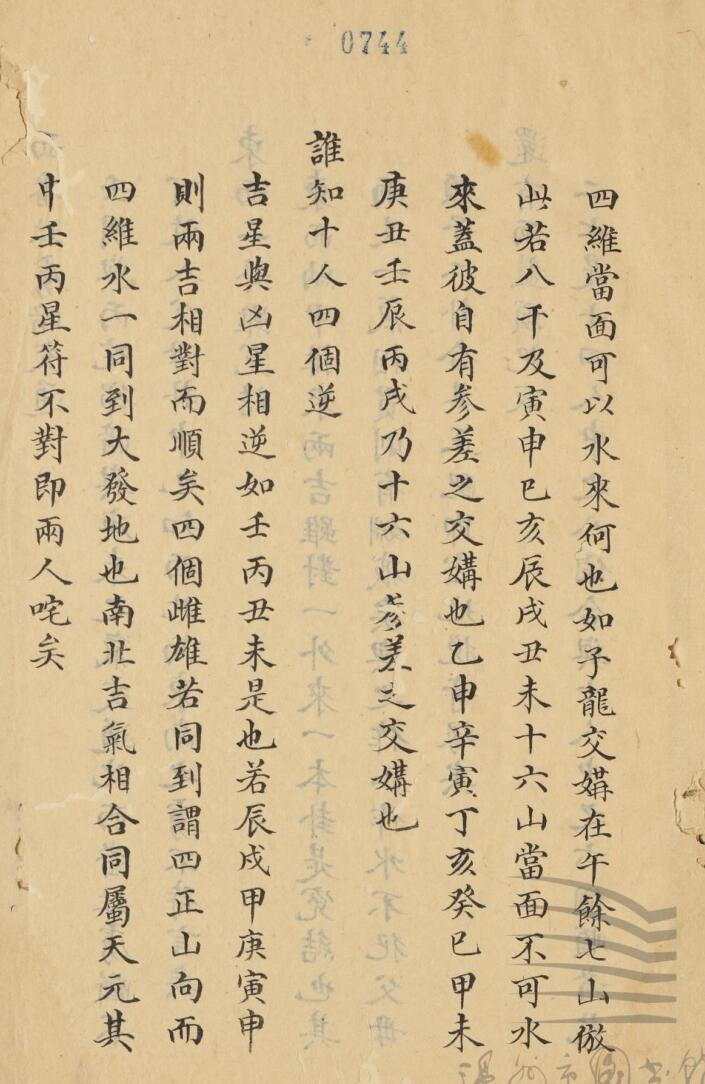 0744
四維當面可以水來何也如子龍交媾在午餘七山倣
此若八干及寅申巳亥辰戌丑未十六山當面不可水
來蓋彼自有參差之交媾也乙申辛寅丁亥癸巳甲未
庚丑壬辰丙戌乃十六山參差之交媾也
誰知十人四個逆
吉星與凶星相逆如壬丙丑未是也若辰戌甲庚寅申
則兩吉相對而順矣四個雌雄若同到謂四正山向而
四維水一同到大發地也南北吉氣相合同屬天元其
中壬丙星符不對即兩人咤矣